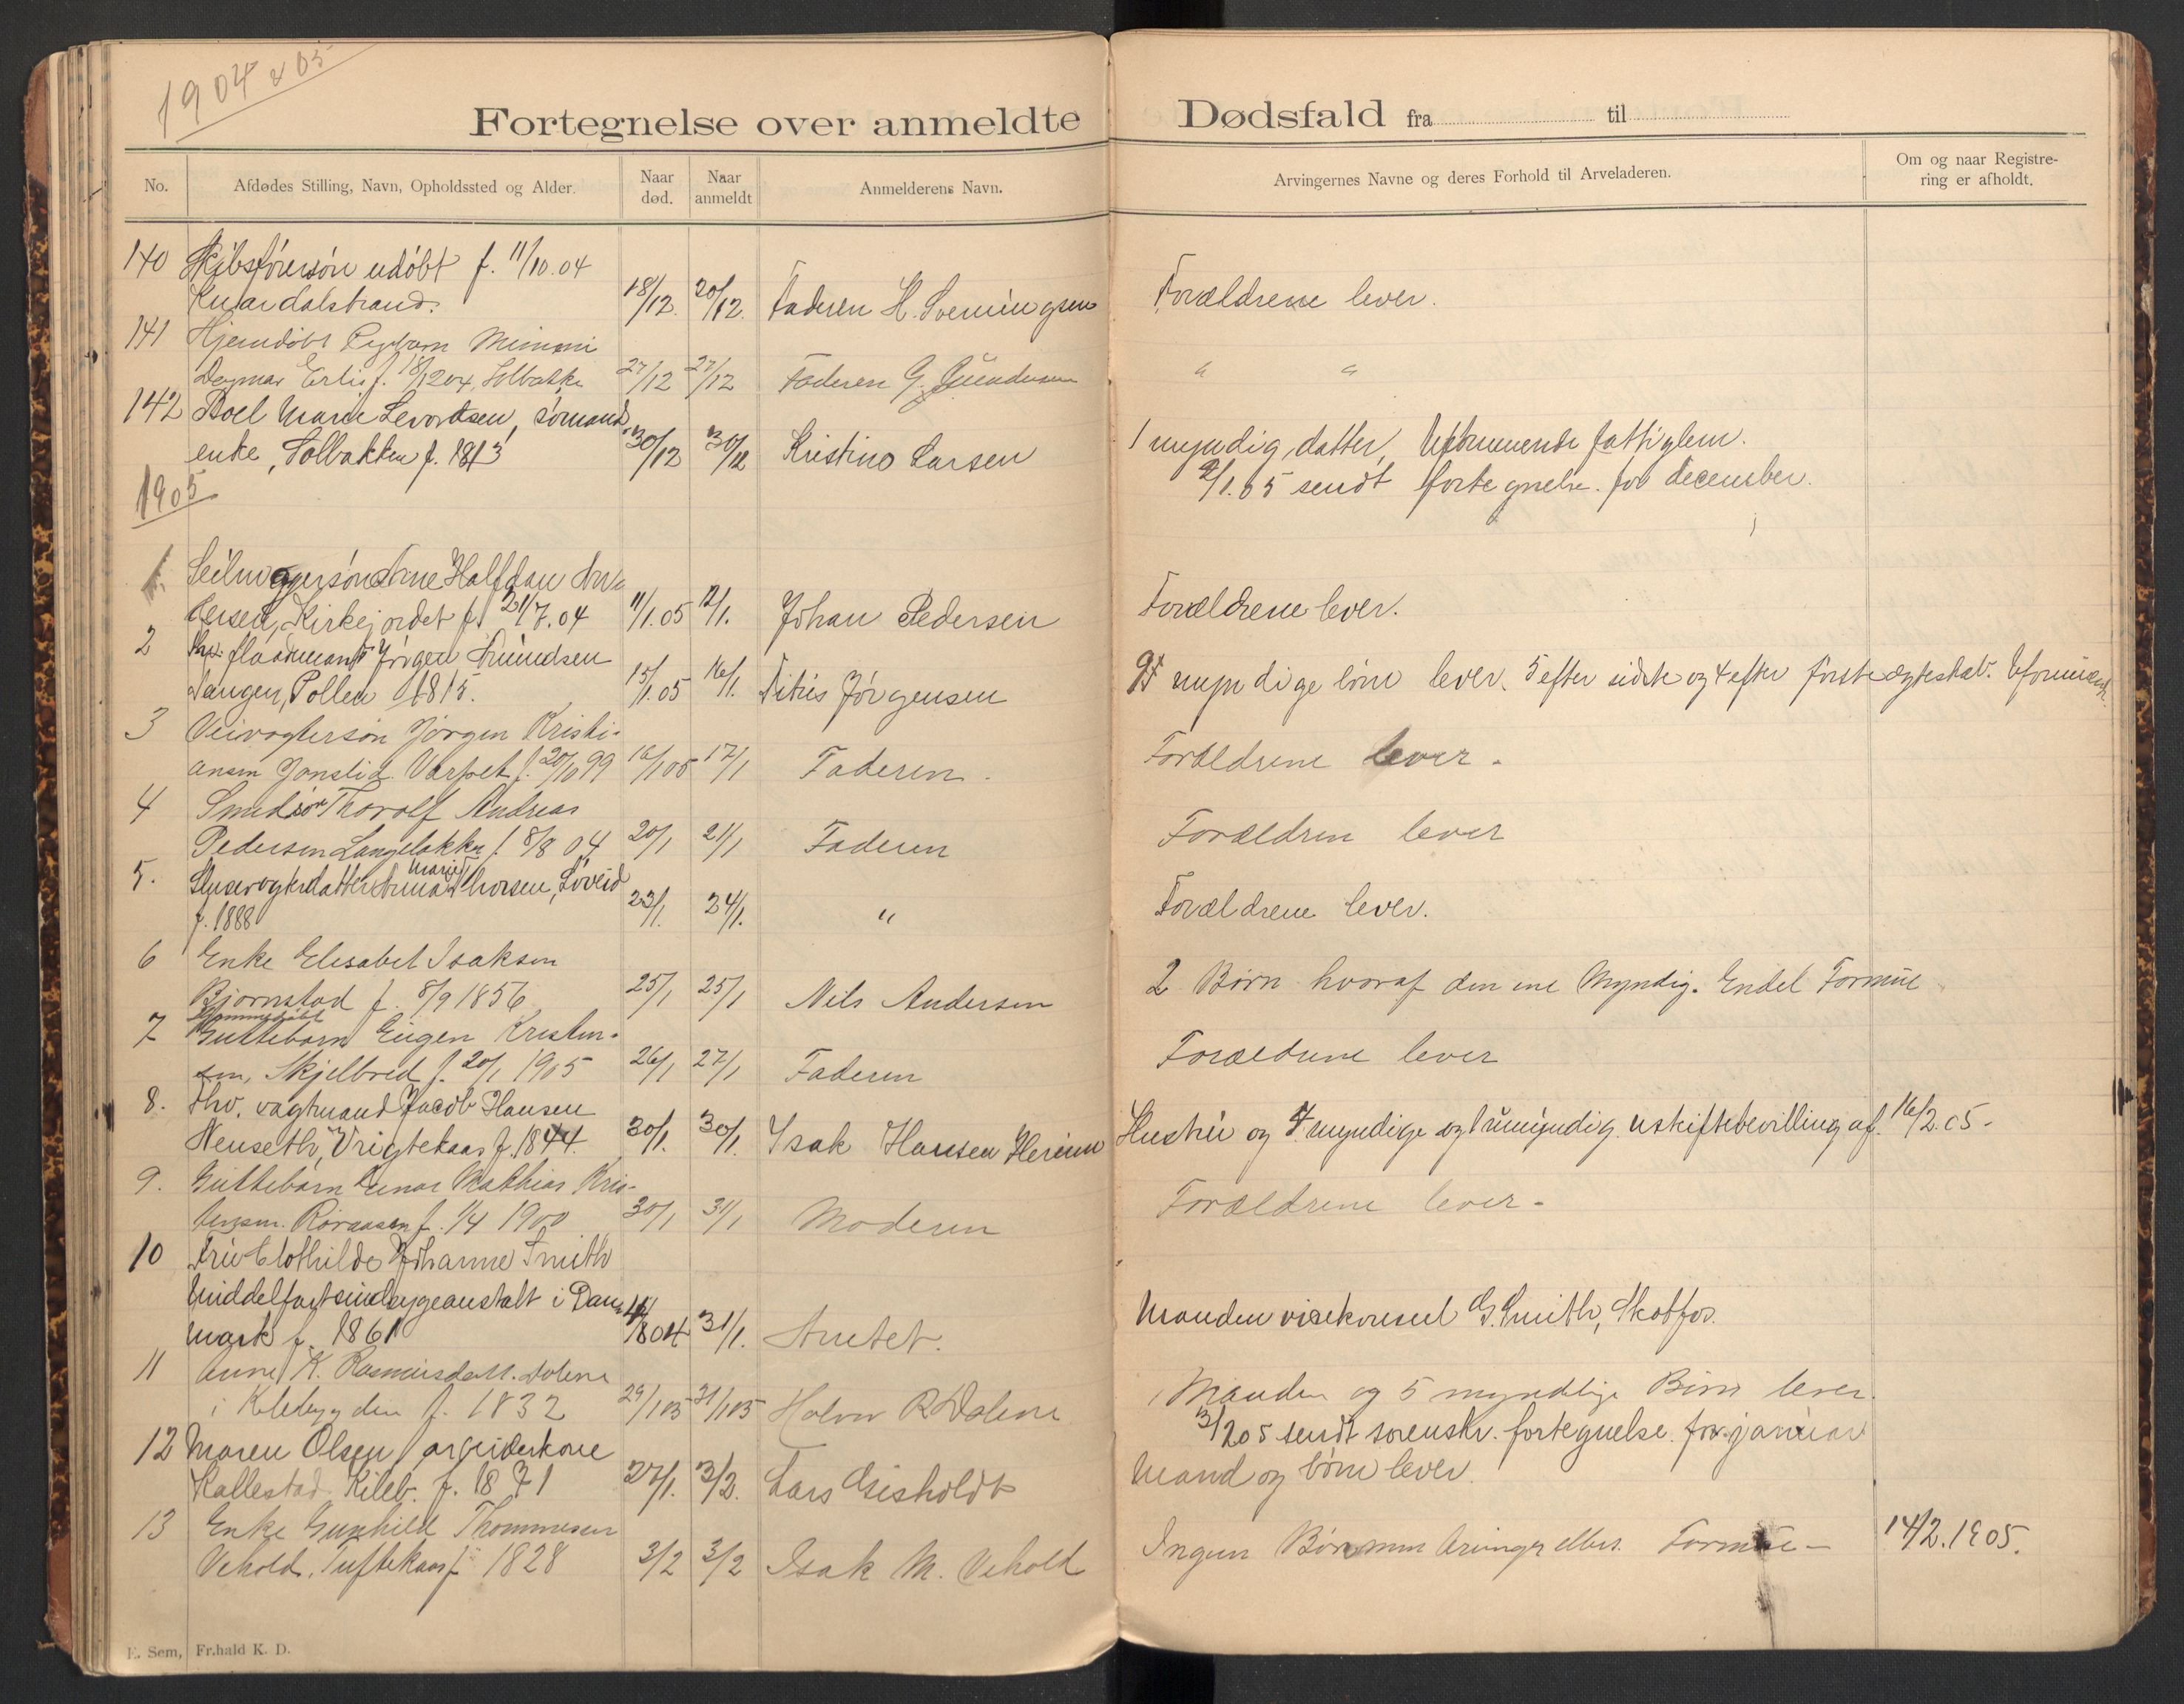 1904 & 05
Fortegnelse over anmeldte Dødsfald fra til
No. Afdødes Stilling, Navn, Opholdssted og Alder. Naar død. Naar anmeldt Anmelderens Navn. Arvingernes Navne og deres Forhold til Arveladeren. Om og naar Registrering er afholdt.
140 Skibsførersøn udøbt f. 11/10.04
Knardalstrand. 18/12. 20/12. Faderen H. Sveningsen Forældrene lever.
141 Hjemdøbt Pigebarn Mimmi
Dagmar f. 18/12 04, Solbakken 27/12 27/12 Faderen G. Gundersen " "
142 Boel Marie Levordsen, sømands
enke, Solbakken f. 1813 30/12 30/12 Kristine Larsen 1 myndig datter, Uformuende fattiglem.
2/1.05 sendt fortegnelse for december.
1905
1. Arne Halfdan
Kirkejordet f. 21/7.04 11/1.05 12/1. Johan Pedersen Forældrene lever.
2 fhv. flaadmand Jørgen Amundsen
Tangen, Pollen f. 1815. 15/1.05 16/1. Titus Jørgensen 9 myndige børn lever. 5 efter sidste og 4 efter første ægteskab.
3 Veivogtersøn Jørgen Kristi-
ansen Varpet f. 20/10 99 16/1 05 17/1 Faderen. Forældrene lever.
4 Smedsøn Thorolf Andreas
Pedersen Langebakken f. 8/8 04 20/1 21/1 Faderen Forældren lever
5. Slusevogterdatter Anna Marie Thorsen, Løveid
f. 1888 23/1. 24/1. " Forældrene lever.
6 Enke Elisabet Isaksen
Bjørnstad f. 8/9 1856 25/1 25/1 Nils Andersen 2 Børn hvoraf den ene Myndig. Endel Formue
7 Hjemmedøbt Guttebarn Eugen Kristen-
sen, Skjelbred f. 20/1 1905 26/1 27/1 Faderen Forældrene lever
8. Fhv. vagtmand Jacob Hansen
Venseth, Vrigtekaas f. 1844. 30/1. 30/1. Isak Hansen Hustru og 4 myndige og 1 umyndig. uskiftebevilling af 16/2.05.
9. Guttebarn Einar Mathias Kris-
tensen. Røraasen f. 1/4 1900 30/1 31/1 Moderen Forældrene lever.
10 Fru Clothilde Johanne Smith
Middelfart sindsygeanstalt i Dan-
mark f. 1861 04 31/1. Amtet. Manden visekonsul G. Smith, Skotfos.
11 Anne K. Rasmusdatt. Dolene
i Kilebygden f. 1832 29/1 05 31/1 05 Halvor R. Dolene Manden og 5 myndige Børn lever.
3/2 05 sendt sorenskr. fortegnelse for januar
12 Maren Olsen, arbeiderkone
Kallestad Kileb. f. 1871 27/1. 3/2. Lars Gisholdt Mand og børn lever.
13 Enke Gunhild Thommesen
Vehold, Tuftekaas f. 1828 3/2 3/2 Isak M. Vehold Ingen Børn men Arvinger ellers. Formue – 14/2.1905.
E. Sem, Fr.hald K. D.